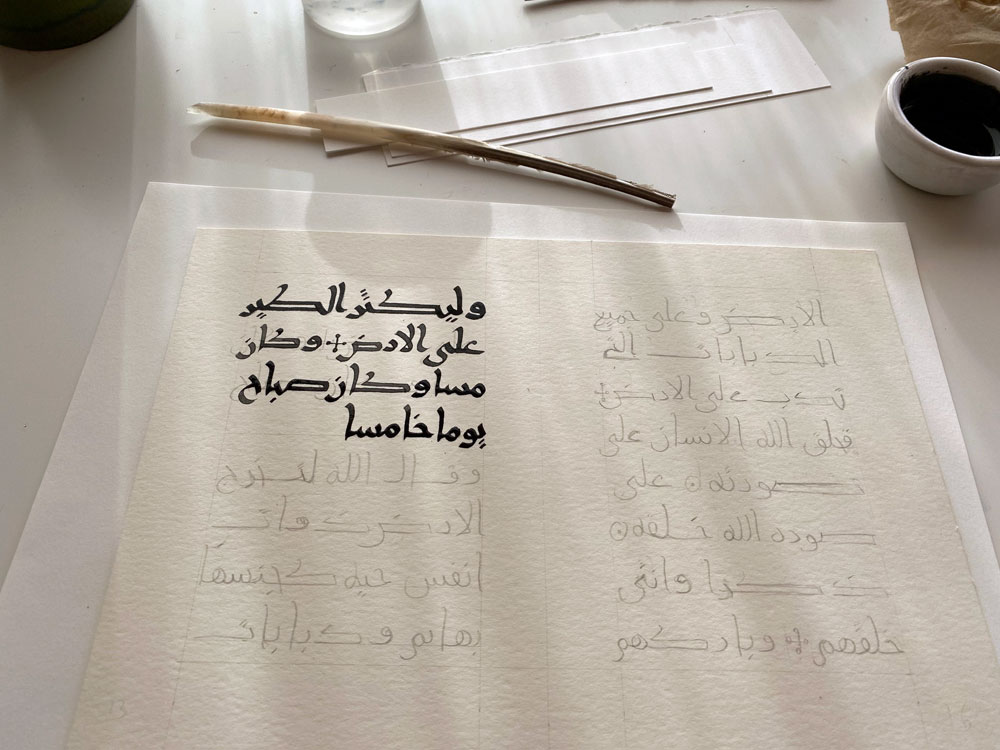 وليكثر الطير
على الارض + وكان
مسا وكان صباح
يوما خامسا
وقال الله لتخرج
الارض ذات
انفس حيه كجنسها
بهايم ودبابات
13
الارض وعلى جميع
الدبابات التي
تدب على الارض +
فخلق الله الانسان على
صورته على
صوره الله خلقه
ذكرا وانثى
خلقهم + وباركهم
16